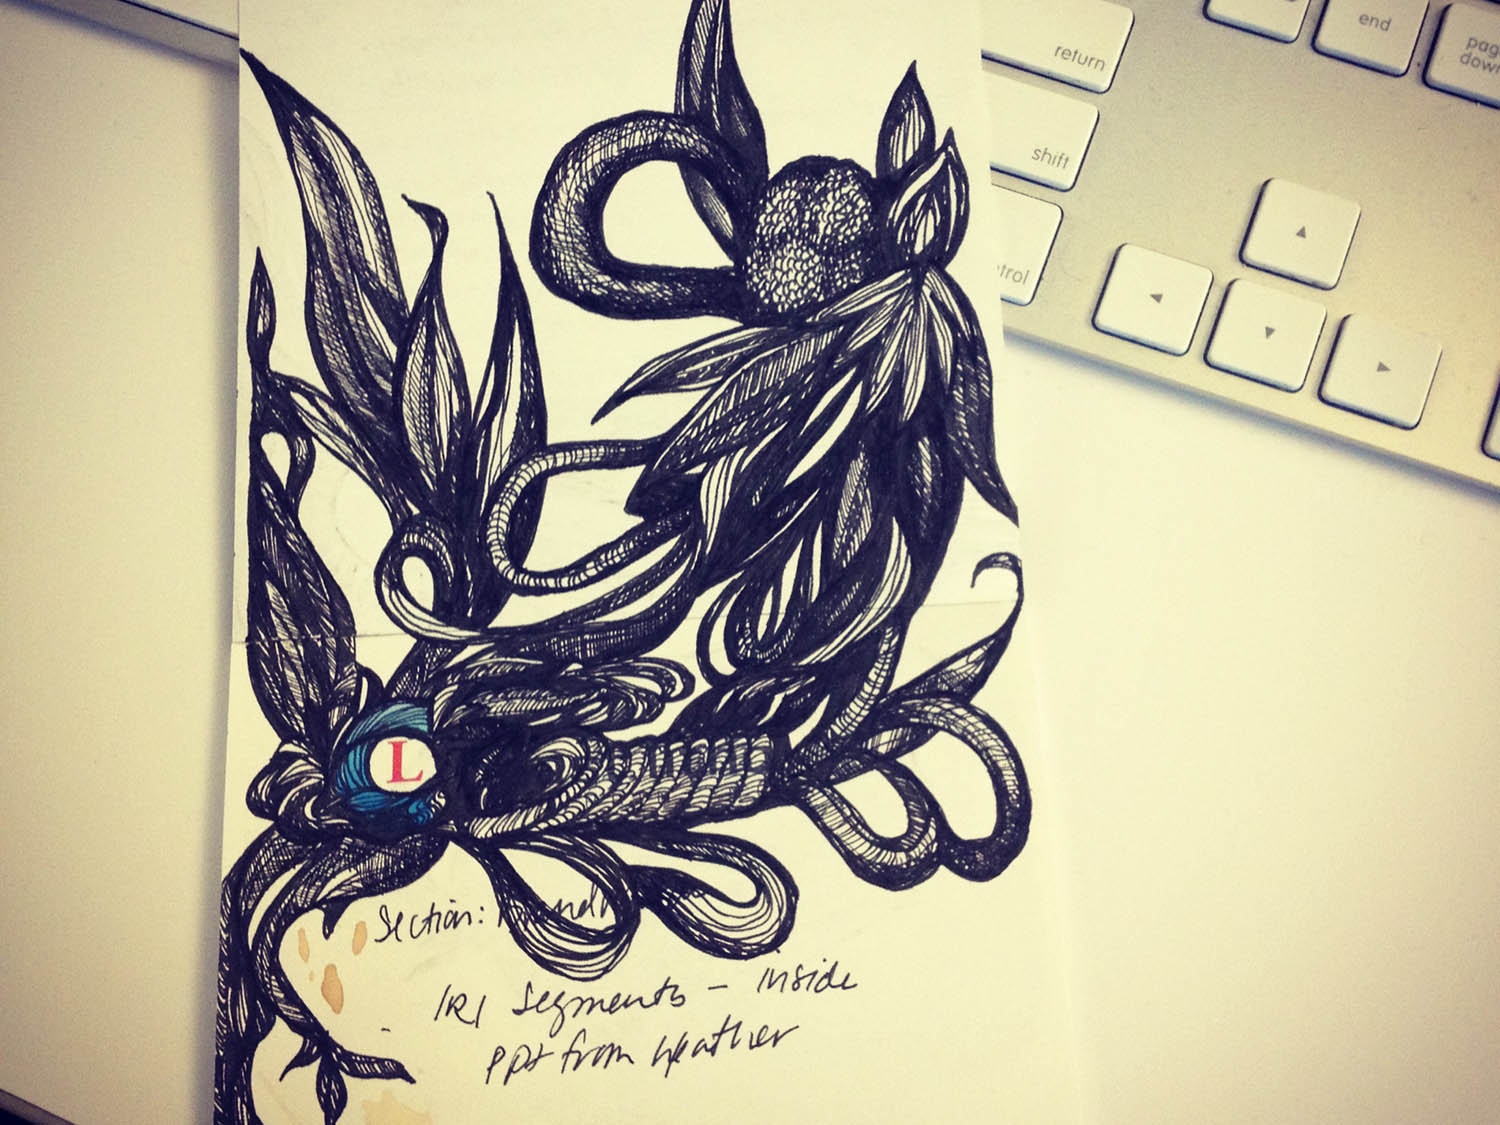 return
end
page
down
shift
trol
L
Section:
IRI Segments – inside
PPt from Heather